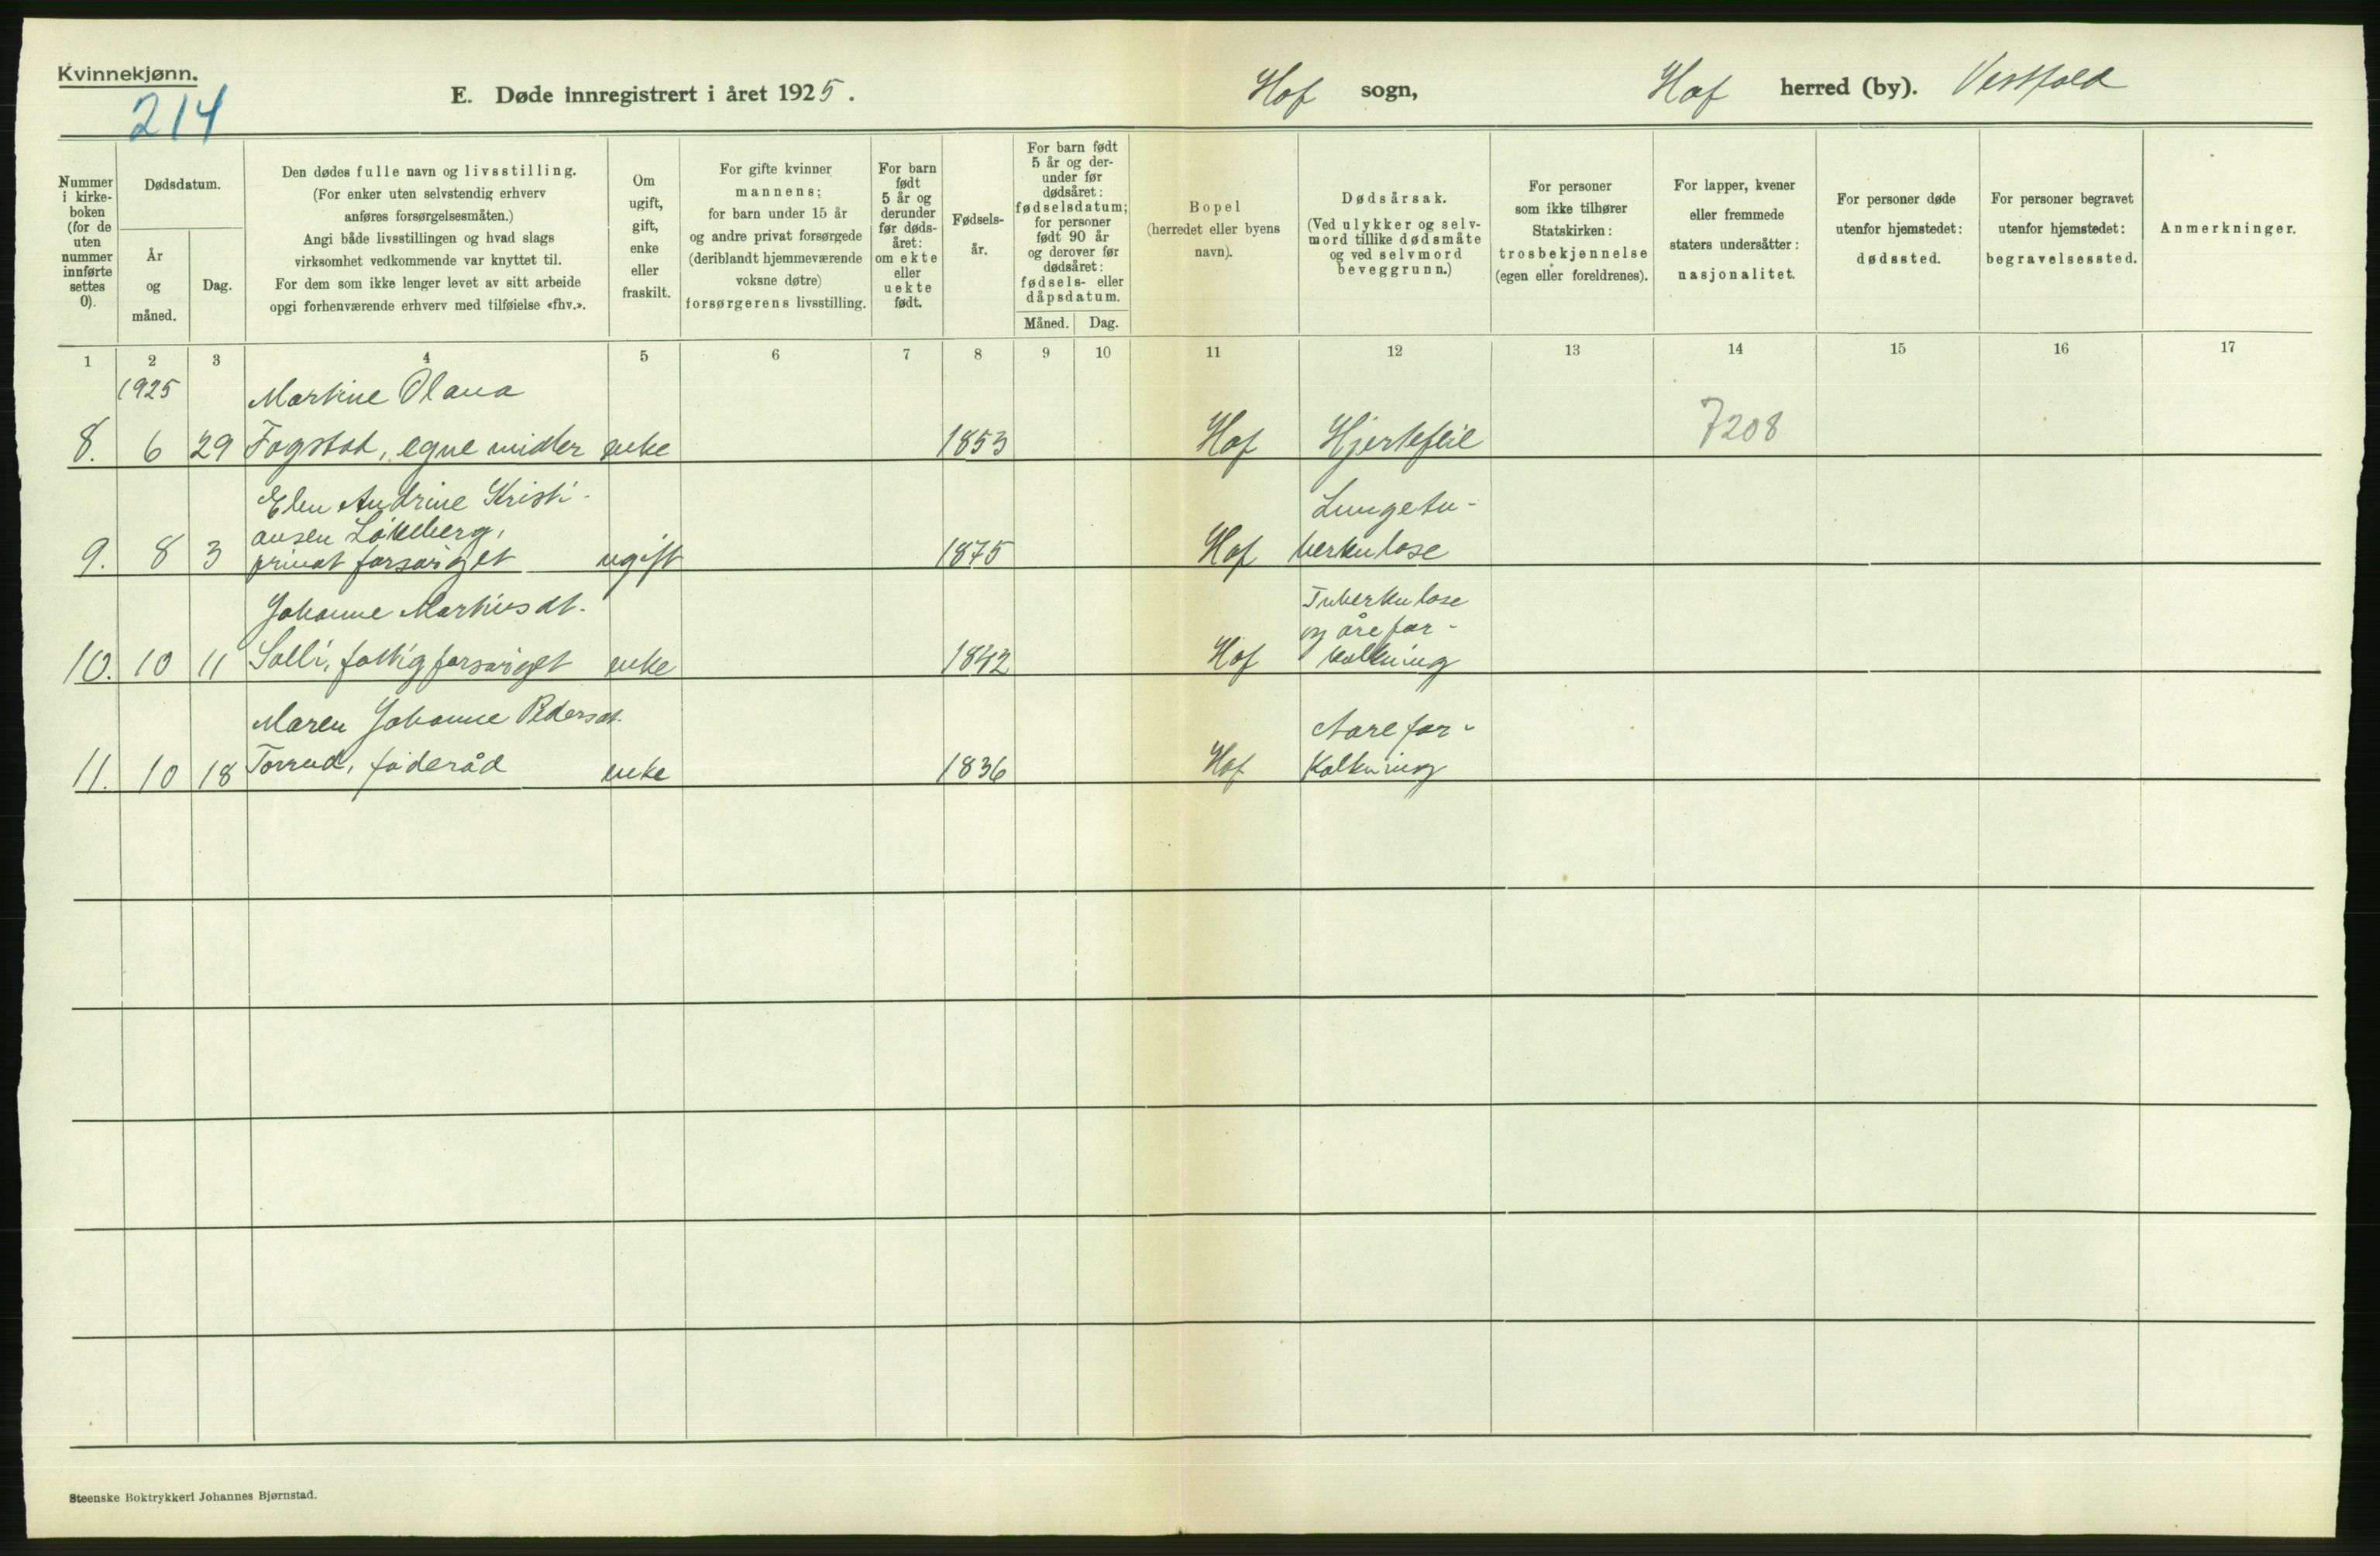 Kvinnekjønn.
214
E. Døde innregistrert i året 1925.
Hof sogn,
Hof herred (by). Vestfold
Nummer
i kirke-
boken
(for de
uten
nummer
innførte
settes
0).
Dødsdatum.
År
og
måned.
Dag.
Den dødes fulle navn og livsstilling.
(For enker uten selvstendig erhverv
anføres forsørgelsesmåten.)
Angi både livsstillingen og hvad slags
virksomhet vedkommende var knyttet til.
For dem som ikke lenger levet av sitt arbeide
opgi forhenværende erhverv med tilføielse «fhv.».
Om
ugift,
gift,
enke
eller
fraskilt.
For gifte kvinner
mannens;
for barn under 15 år
og andre privat forsørgede
(deriblandt hjemmeværende
voksne døtre)
forsørgerens livsstilling.
For barn
født
5 år og
derunder
før døds-
året:
om ekte
eller
uekte
født.
Fødsels-
år.
For barn født
5 år og der-
under før
dødsåret:
fødselsdatum;
for personer
født 90 år
og derover før
dødsåret:
fødsels- eller
dåpsdatum.
Måned. Dag.
Bopel
(herredet eller byens
navn).
Dødsårsak.
(Ved ulykker og selv-
mord tillike dødsmåte
og ved selvmord
beveggrunn.)
For personer
som ikke tilhører
Statskirken:
trosbekjennelse
(egen eller foreldrenes).
For lapper, kvener
eller fremmede
staters undersåtter:
nasjonalitet.
For personer døde
utenfor hjemstedet:
dødssted.
For personer begravet
utenfor hjemstedet:
begravelsessted.
Anmerkninger.
1 2 3 4 5 6 7 8 9 10 11 12 13 14 15 16 17
1925 Martine Olava
8. 6 29 Fogstad, egne midler enke 1853 Hof Hjertefeil 7208
Elen Andrine Kristi- Lungetu-
ansen Løkeberg,
9. 8 3 privat forsørget ugift 1875 Hof berkulose
Johanne Martinsdt. Tuberkulose
og årefor-
10. 10 11 Solli, fattigforsørget enke 1842 Hof kalkning
Maren Johanne Pedersdt. Aarefor-
11. 10 18 Torrud, føderåd enke 1836 Hof kalkning
Steenske Boktrykkeri Johannes Bjørnstad.